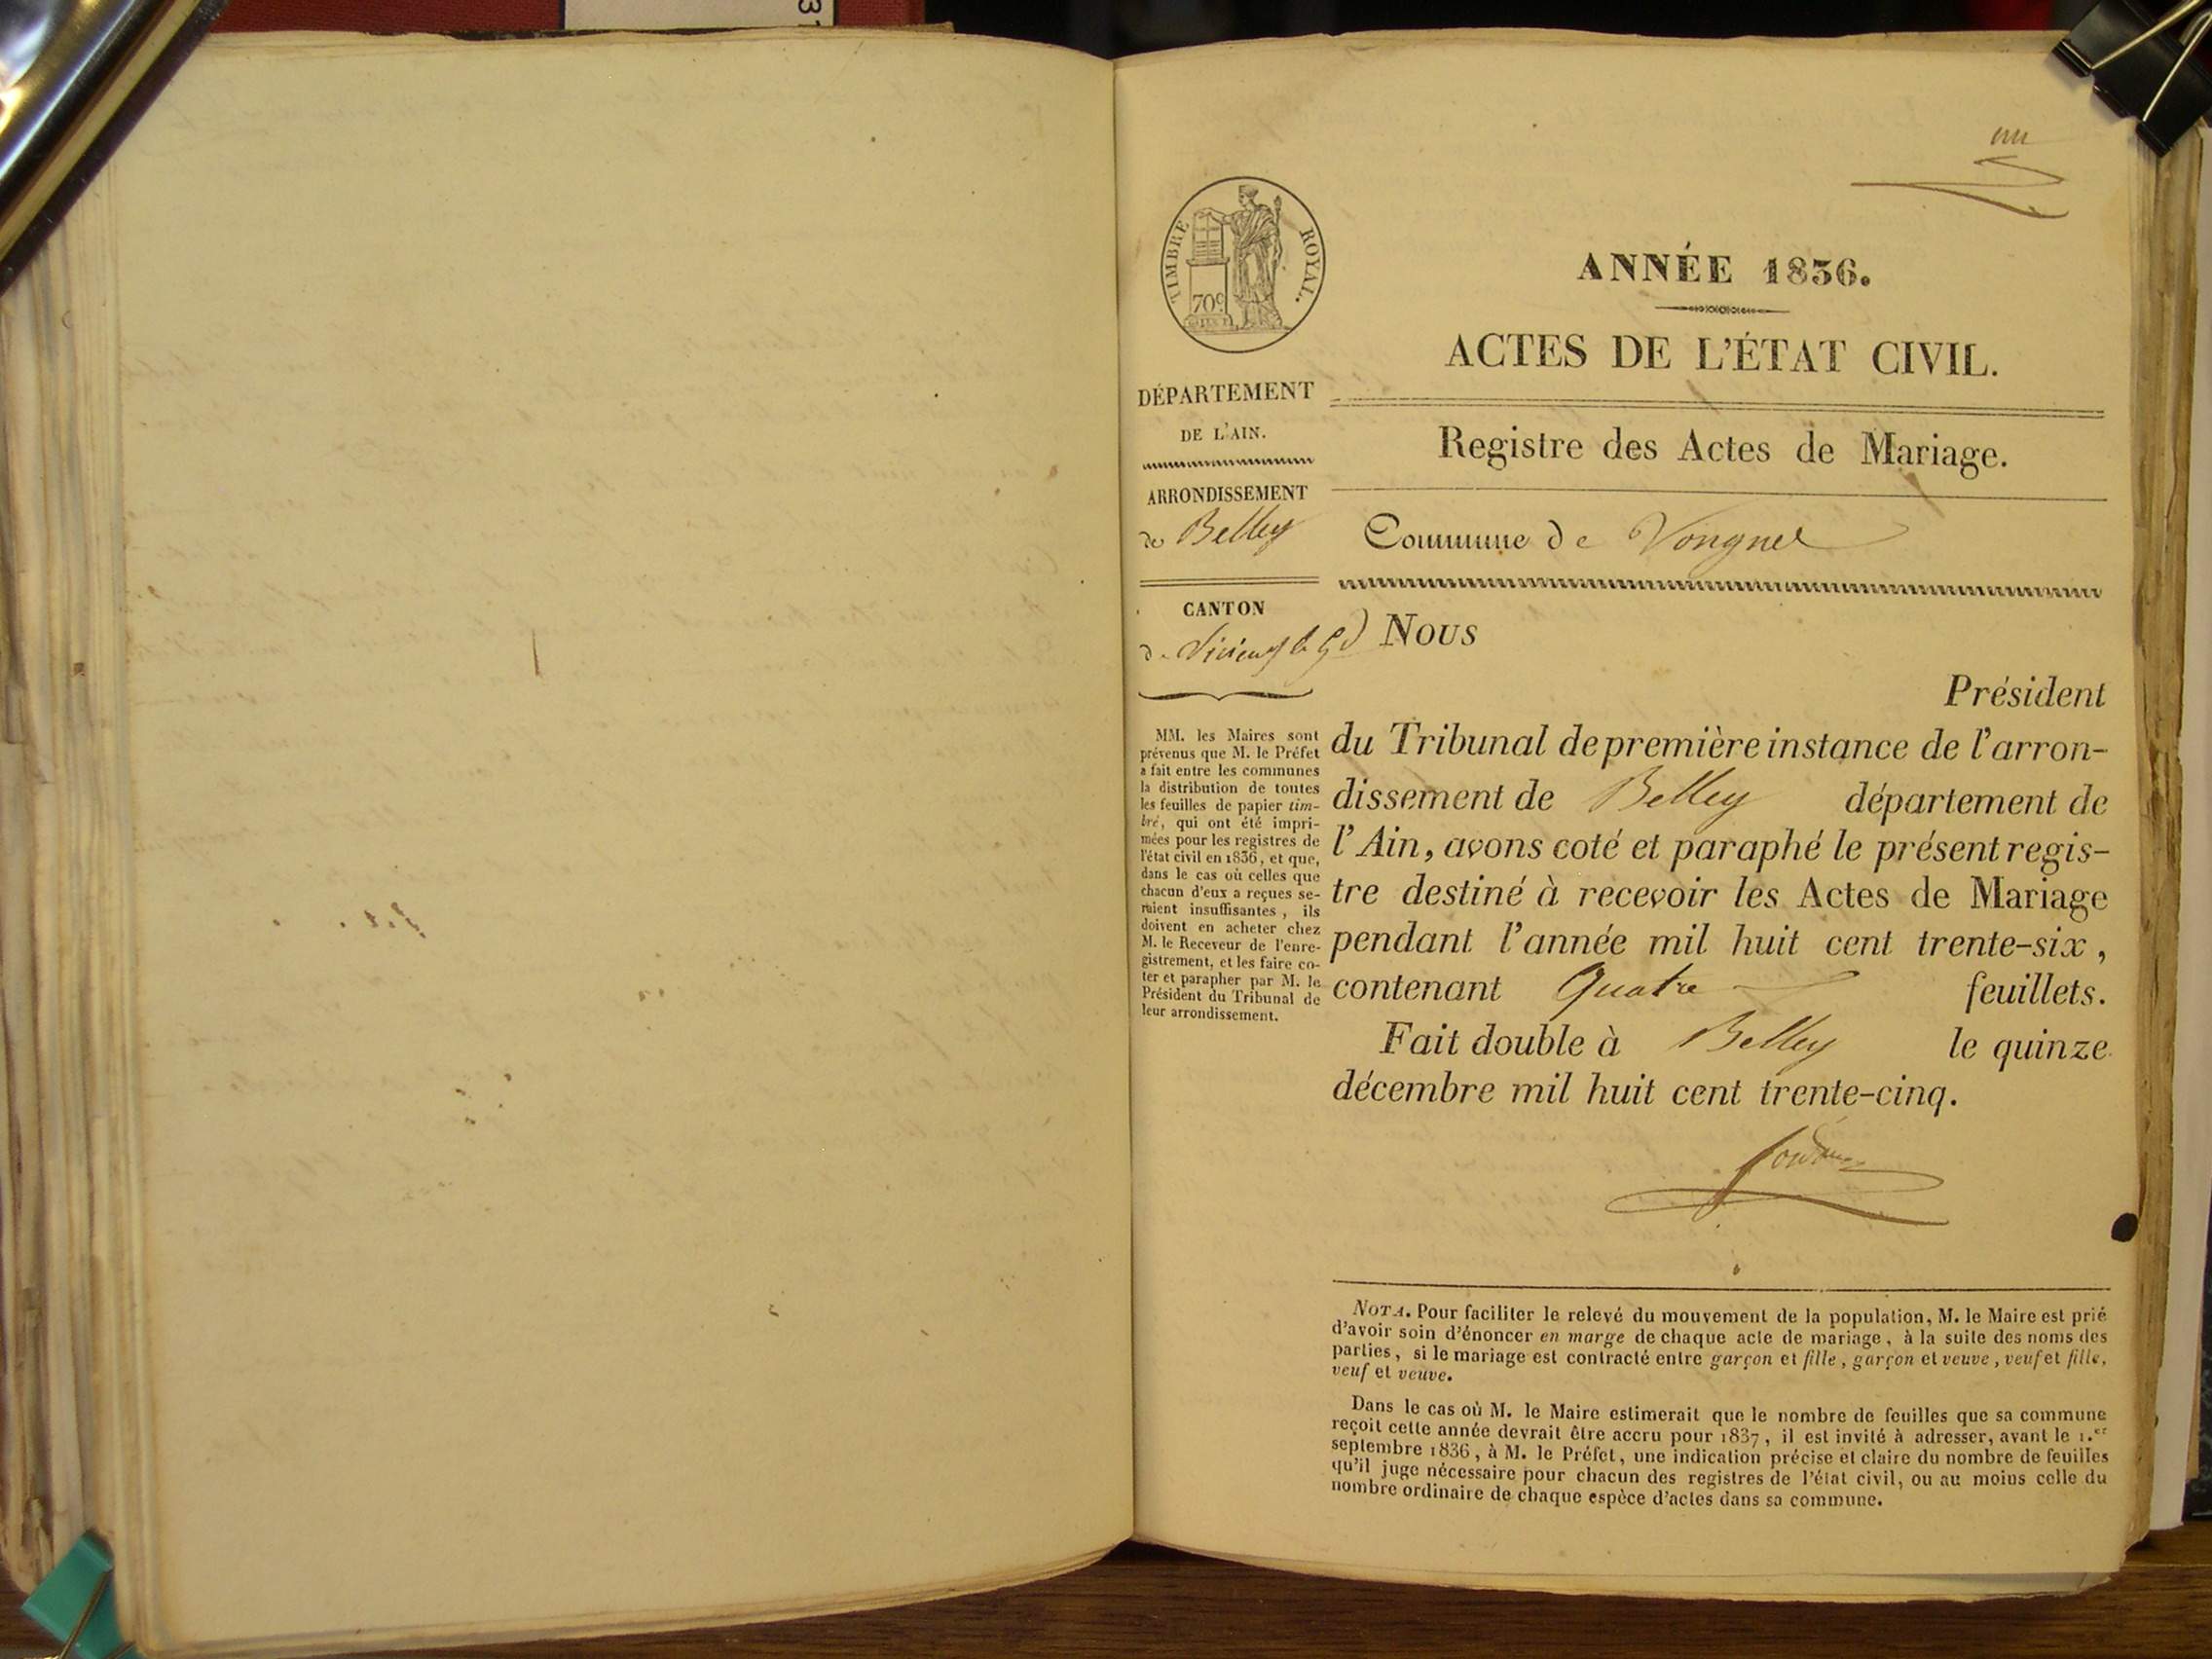 31
un
TIMBRE ROYAL.
70c.
ANNÉE 1836.
ACTES DE L'ÉTAT CIVIL.
Registre des Actes de Mariage.
Commune de Vongnes
DÉPARTEMENT
DE L'AIN.
ARRONDISSEMENT
de Belley
CANTON
de Virieu le Gd
MM. les Maires sont
prévenus que M. le Préfet
a fait entre les communes
la distribution de toutes
les feuilles de papier tim-
bré, qui ont été impri-
mées pour les registres de
l'état civil en 1836, et que,
dans le cas où celles que
chacun d'eux a reçues se-
raient insuffisantes, ils
doivent en acheter chez
M. le Receveur de l'enre-
gistrement, et les faire co-
ter et parapher par M. le
Président du Tribunal de
leur arrondissement.
Nous
Président
du Tribunal de première instance de l'arron-
dissement de Belley département de
l'Ain, avons coté et paraphé le présent regis-
tre destiné à recevoir les Actes de Mariage
pendant l'année mil huit cent trente-six,
contenant Quatre feuillets.
Fait double à Belley le quinze
décembre mil huit cent trente-cinq.
NOTA. Pour faciliter le relevé du mouvement de la population, M. le Maire est prié
d'avoir soin d'énoncer en marge de chaque acte de mariage, à la suite des noms des
parties, si le mariage est contracté entre garçon et fille, garçon et veuve, veuf et fille,
veuf et veuve.
Dans le cas où M. le Maire estimerait que le nombre de feuilles que sa commune
reçoit cette année devrait être accru pour 1837, il est invité à adresser, avant le 1.er
septembre 1836, à M. le Préfet, une indication précise et claire du nombre de feuilles
qu'il juge nécessaire pour chacun des registres de l'état civil, ou au moins celle du
nombre ordinaire de chaque espèce d'actes dans sa commune.